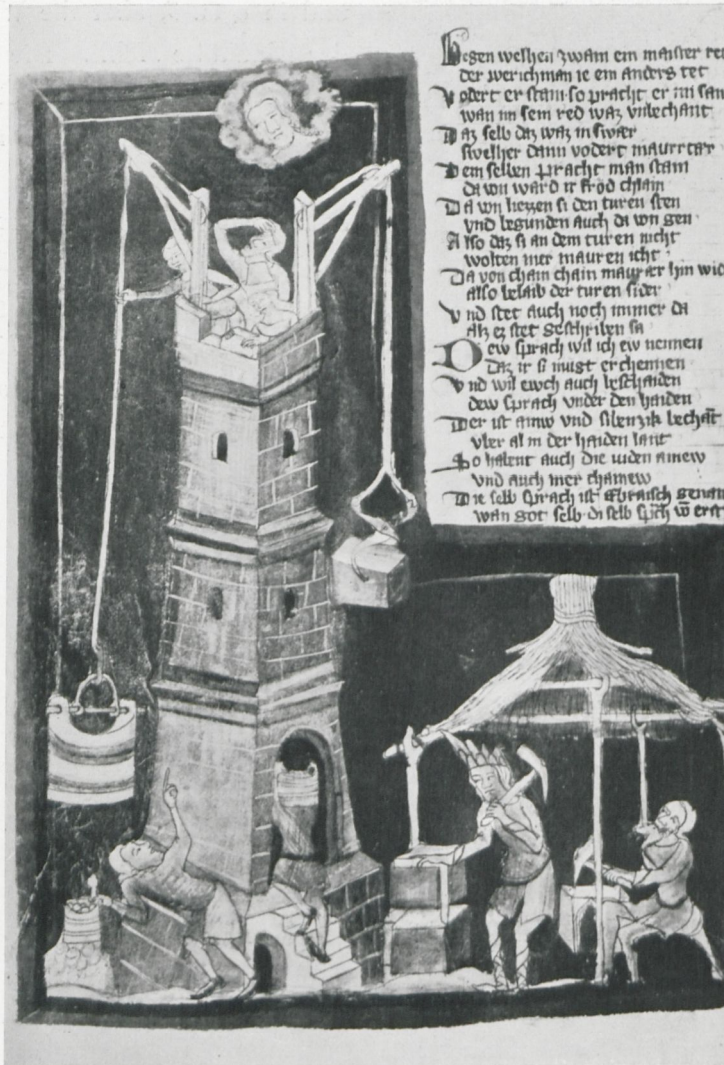 Gegen welhen zwain ein maister re
der werichman ie ein anders tet
Vodert er stain so pracht er im san
wan im sein red waz vnbechant
Daz selb daz waz in swær
swelher dann vodert maurrtær
Dem selben pracht man stain
da von ward ir fröd chlain
Da von liezzen si den turen sten
vnd begunden auch da von gen
Also daz si an dem turen nicht
wolten mer mauren icht
Da von cham chain maurær hin wid
also belaib der turen sider
Vnd stet auch noch immer da
alz ez stet geschriben sa
Dew sprach wil ich ew nennen
Daz ir si mugt erchennen
Vnd wil ewch auch beschaiden
dew sprach vnder den haiden
Der ist ainw vnd sibenzik bechāt
vber al in der haiden lant
So habent auch die iuden ainew
vnd auch mer chainew
Die selb sprach ist Ebraisch genan
wan got selb di selb sp̄ch vō erst